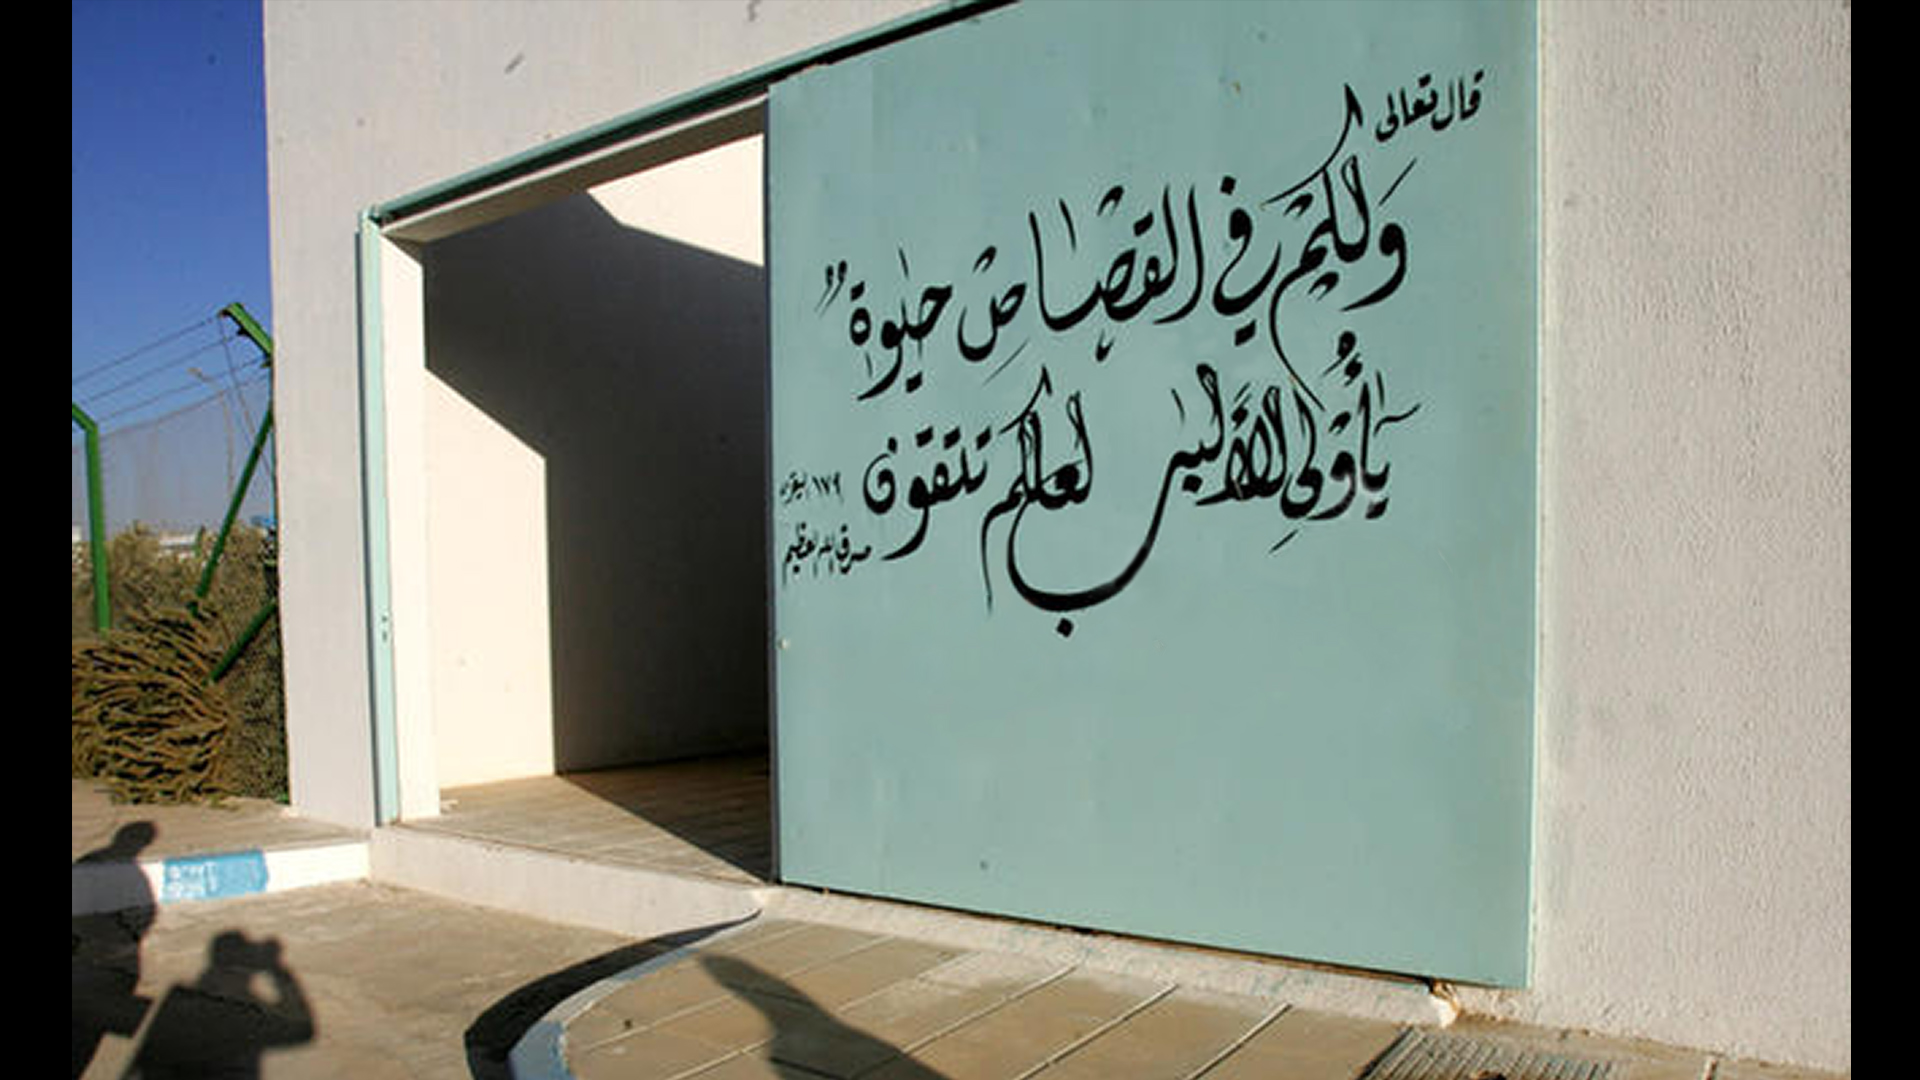 قال تعالى
وَلَكُمْ فِي الْقِصَاصِ حَيٰوةٌ
يٰأُوْلِي الْأَلْبٰبِ لعلكم تتقون
١٧٩ البقرة
صدق الله العظيم